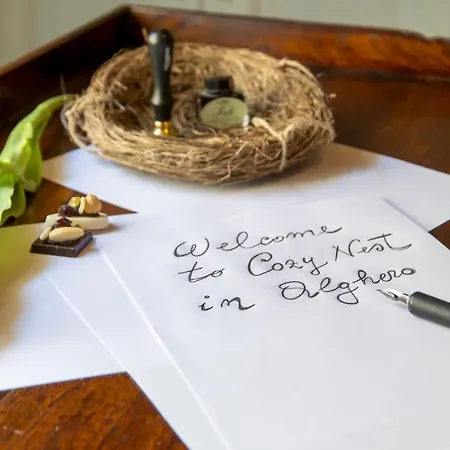 Welcome
to Cozy Nest
in Alghero